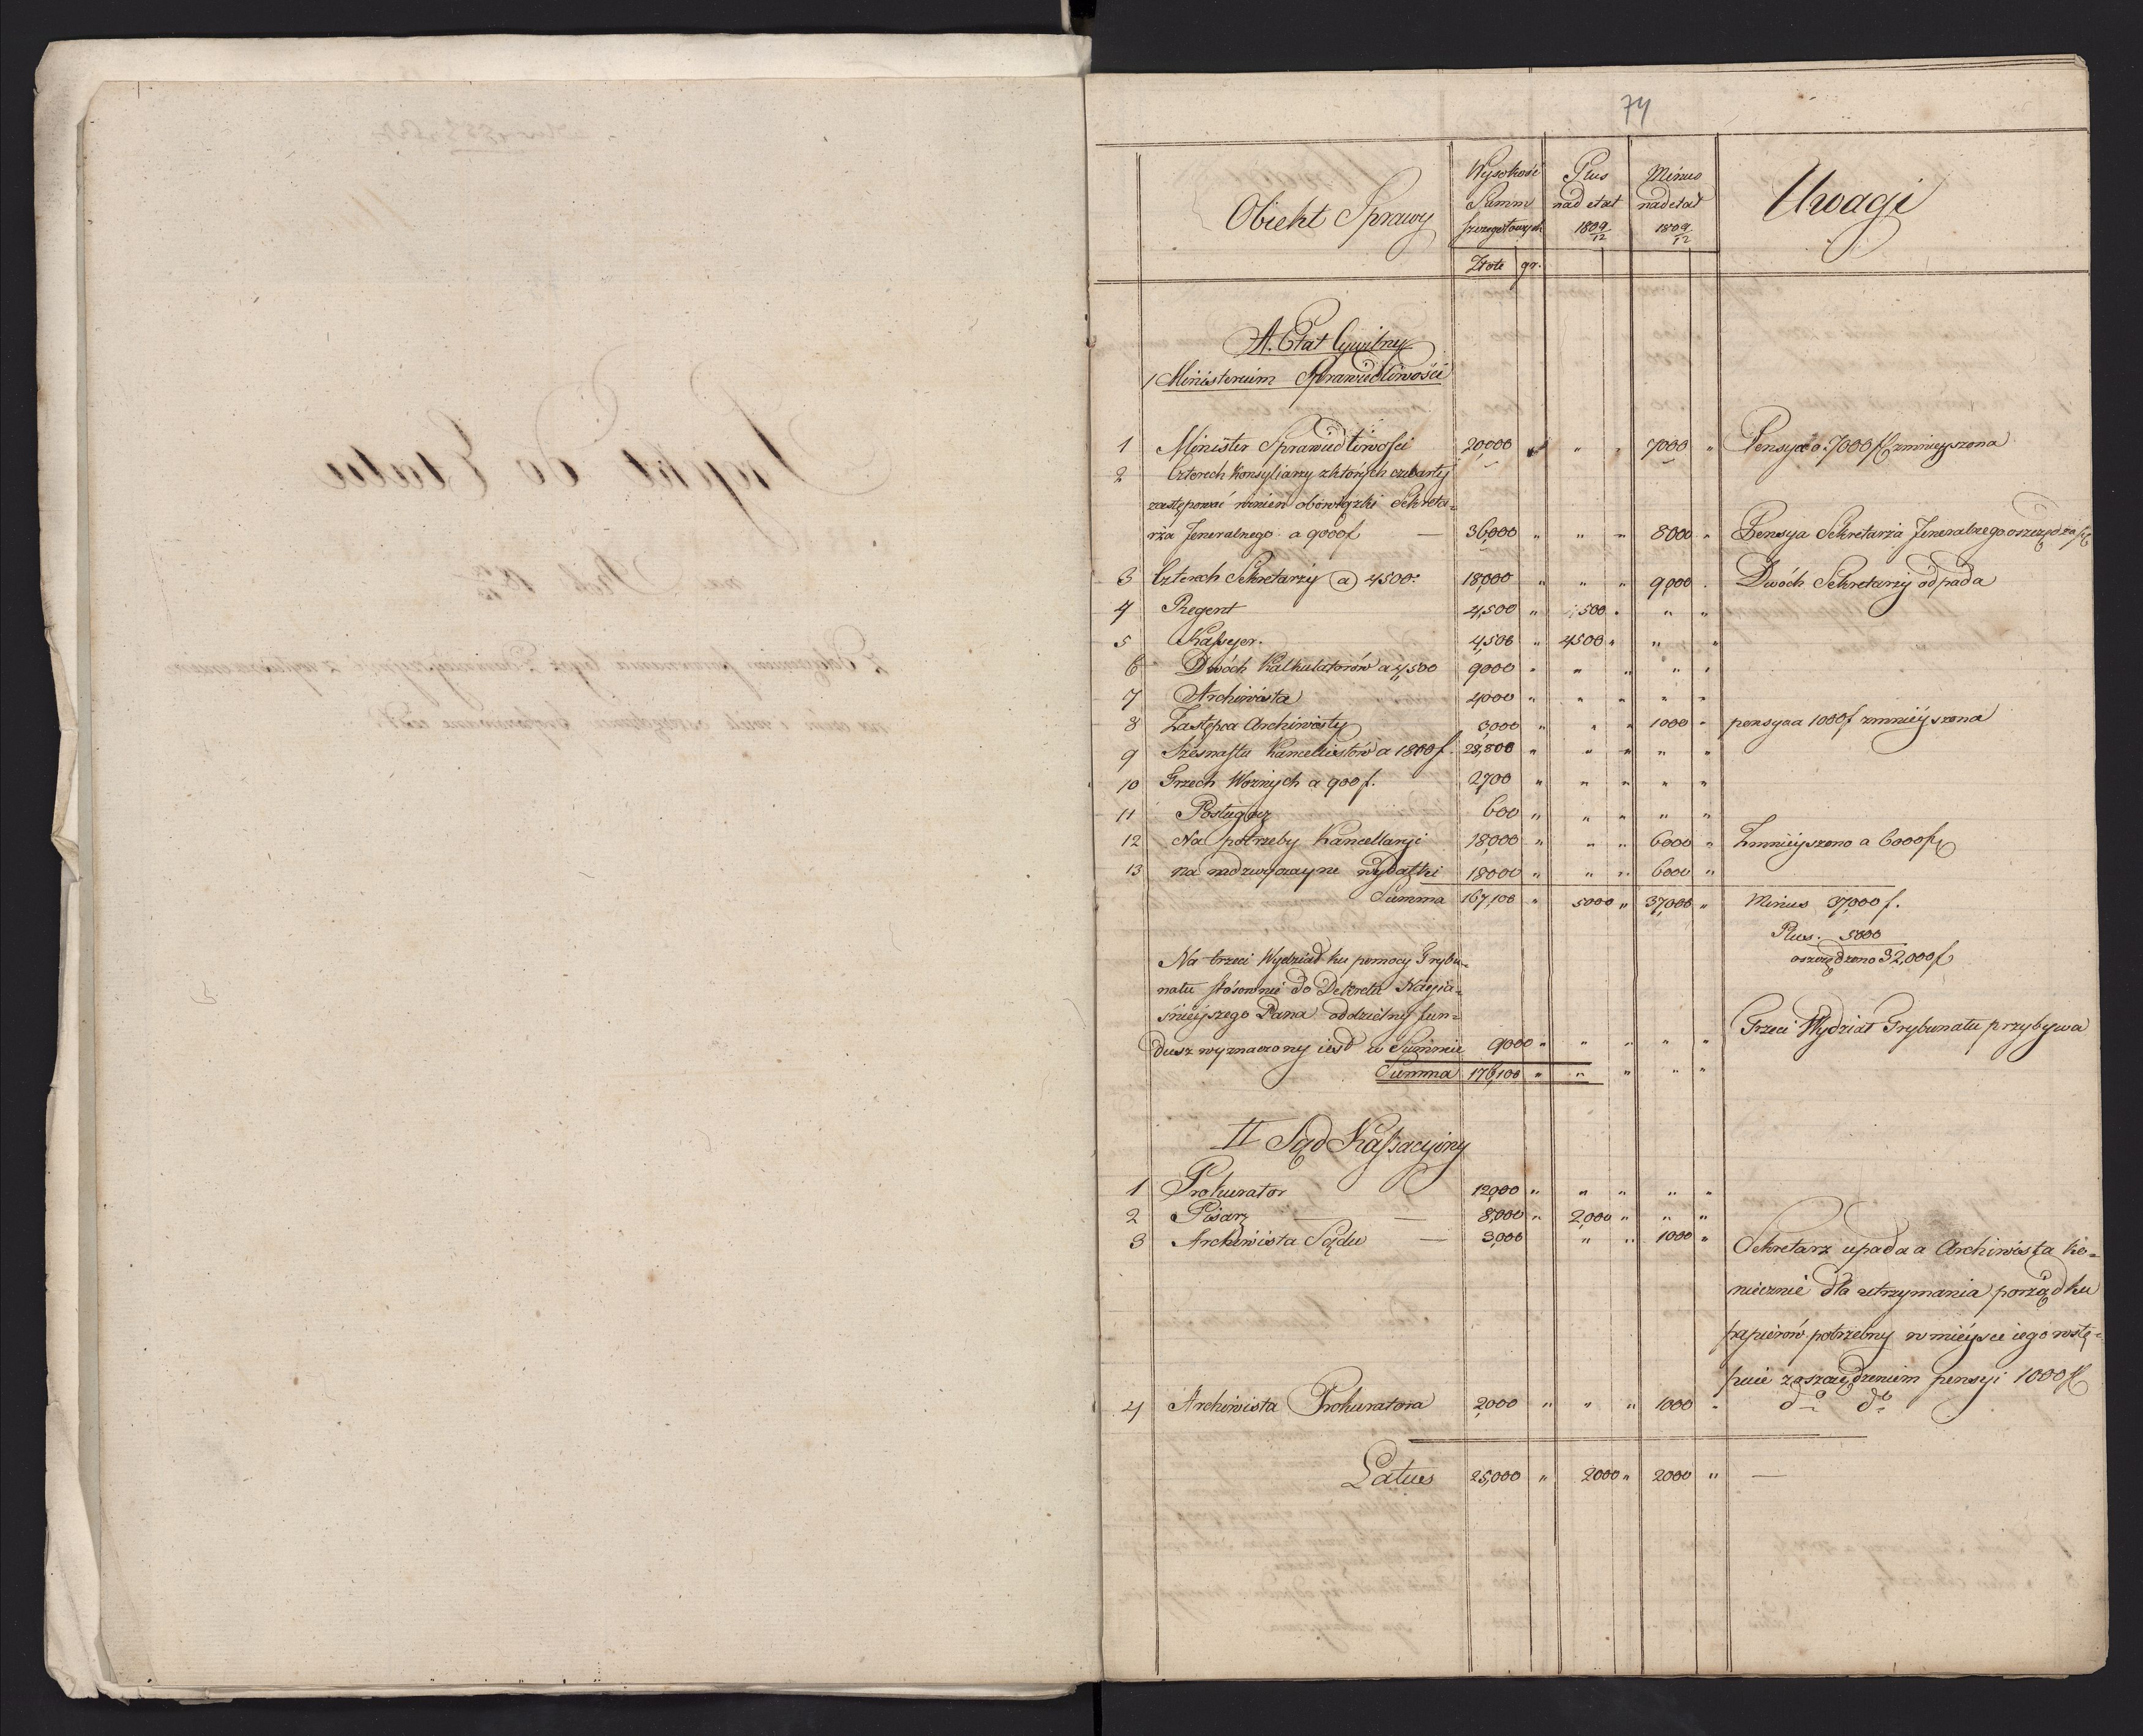 74
Obiekt Sprawy
Wysokość Summ szczegółowych
Złote gr.
Plus nad etat 1809/12
Minus nad etat 1809/12
Uwagi
A. Etat Cywilny
1 Ministerium Sprawiedliwości
1 Minister Sprawiedliwości 20,000 " " " 7000 " Pensya o 7000 f zmnieyszona
2 Czterech Konsyliarzy z których czwarty
zastępować winien obowiązki Sekreta=
rza Jeneralnego a 9000f — 36,000 " " " 8000 " Pensya Sekretarza Jeneralnego oszczędza się
3 Czterech Sekretarzy a 4500. 18,000 " " " 9,000 . Dwóch Sekretarzy odpada
4 Regent 4,500 " 500 " " "
5 Kassyer. 4,500 " 4500 " " "
6 Dwóch Kalkulatorów a 4,500 9000 " " " " "
7 Archiwista 4000 " " " " "
8 Zastępca Archiwisty 3,000 " " " 1000 " pensya a 1000f zmnieyszona
9 Szesnastu Kancellistów a 1800 f. 28,800 " " " " "
10 Trzech Woznych a 900 f. 2700 " " " " "
11 Posługacz 600 " " " " "
12 Na potrzeby Kancellaryi 18,000 " " " 6000 " Zmnieyszono a 6000 f
13 na nadzwyczayne wydatki 18000 " " " 6000 "
Summa 167,100 " 5000 " 37,000 " Minus 37,000 f.
Plus. 5000
oszczędzono 32,000 f
Na trzeci Wydział ku pomocy Trybu=
nału stosownie do Dekretu Nayja=
śnieyszego Pana oddzielny fun=
dusz wyznaczony iest w Summie 9000 " " " " " Trzeci Wydział Trybunału przybywa
Summa 176,100 " " " " "
II Sąd Kassacyjny
1 Prokurator 12,000 " " " " "
2 Pisarz — — 8,000 " 2,000 " " "
3 Archiwista Sądu — 3,000 " " 1000 " Sekretarz upada a Archiwista ko=
niecznie dla utrzymania porządku
papierów potrzebny w mieysce iego wstę=
puie z oszczędzeniem pensyi 1000 f
4 Archiwista Prokuratora 2,000 " " " 1000 " do do
Latus 25,000 " 2000 " 2000 " —